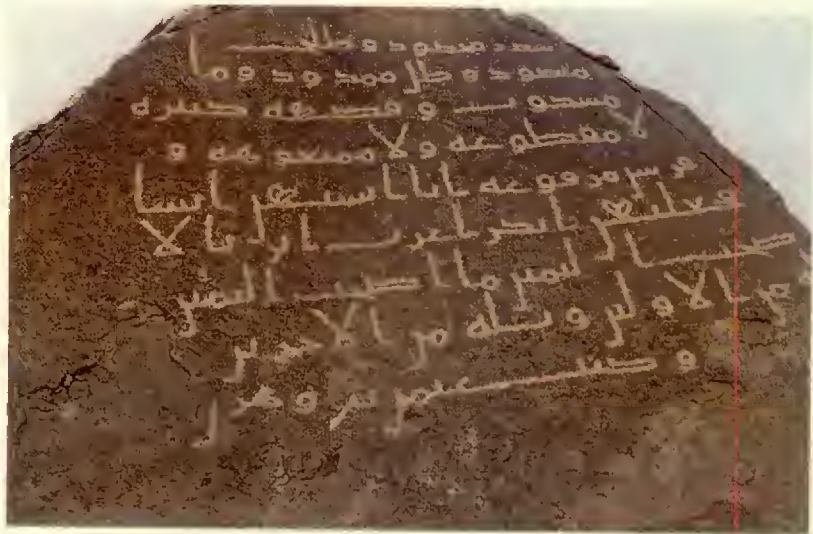 سدر مخضود وطلح
منضود وظل ممدود وما
مسكوب وفكهة كثيرة
لا مقطوعة ولا ممنوعة و
فرش مرفوعة انا انشانهن انشا
فجعلنهن ابكارا عربا اترابا لا
صحب اليمين ما اصحب اليمين
من الاولين وثلة من الاخرين
وكتب